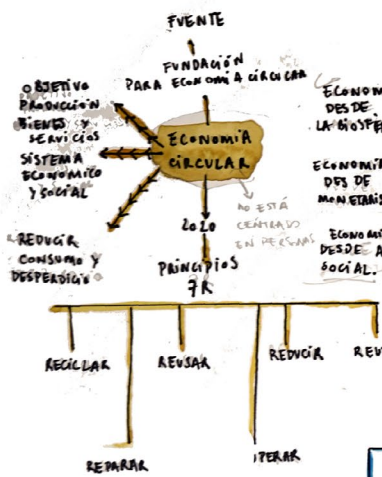 FUENTE
FUNDACIÓN
PARA ECONOMIA CIRCULAR
OBJETIVO
PRODUCCION
BIENES Y
SERVICIOS
SISTEMA
ECONOMICO
Y SOCIAL
REDUCIR
CONSUMO Y
DESPERDICIO
ECONOMIA
CIRCULAR
NO ESTÁ
CENTRADO
EN PERSONAS
2020
PRINCIPIOS
7R
ECONOM
DESDE
LA BIOSFE
ECONOMIA
DES DE
MONETARIS
ECONOM
DESDE A
SOCIAL.
RECICLAR
REUSAR
REDUCIR
REPARAR